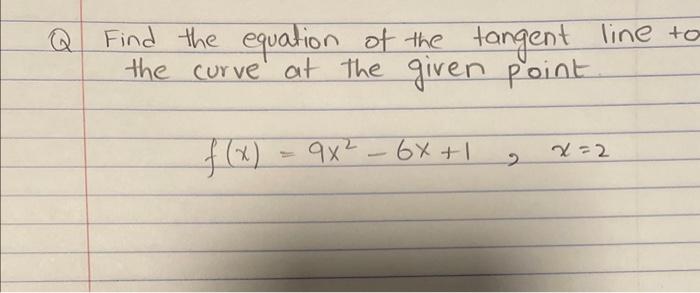 Q Find the equation of the tangent line to
the curve at the given point.
f(x) = 9x² - 6x +1 , x=2